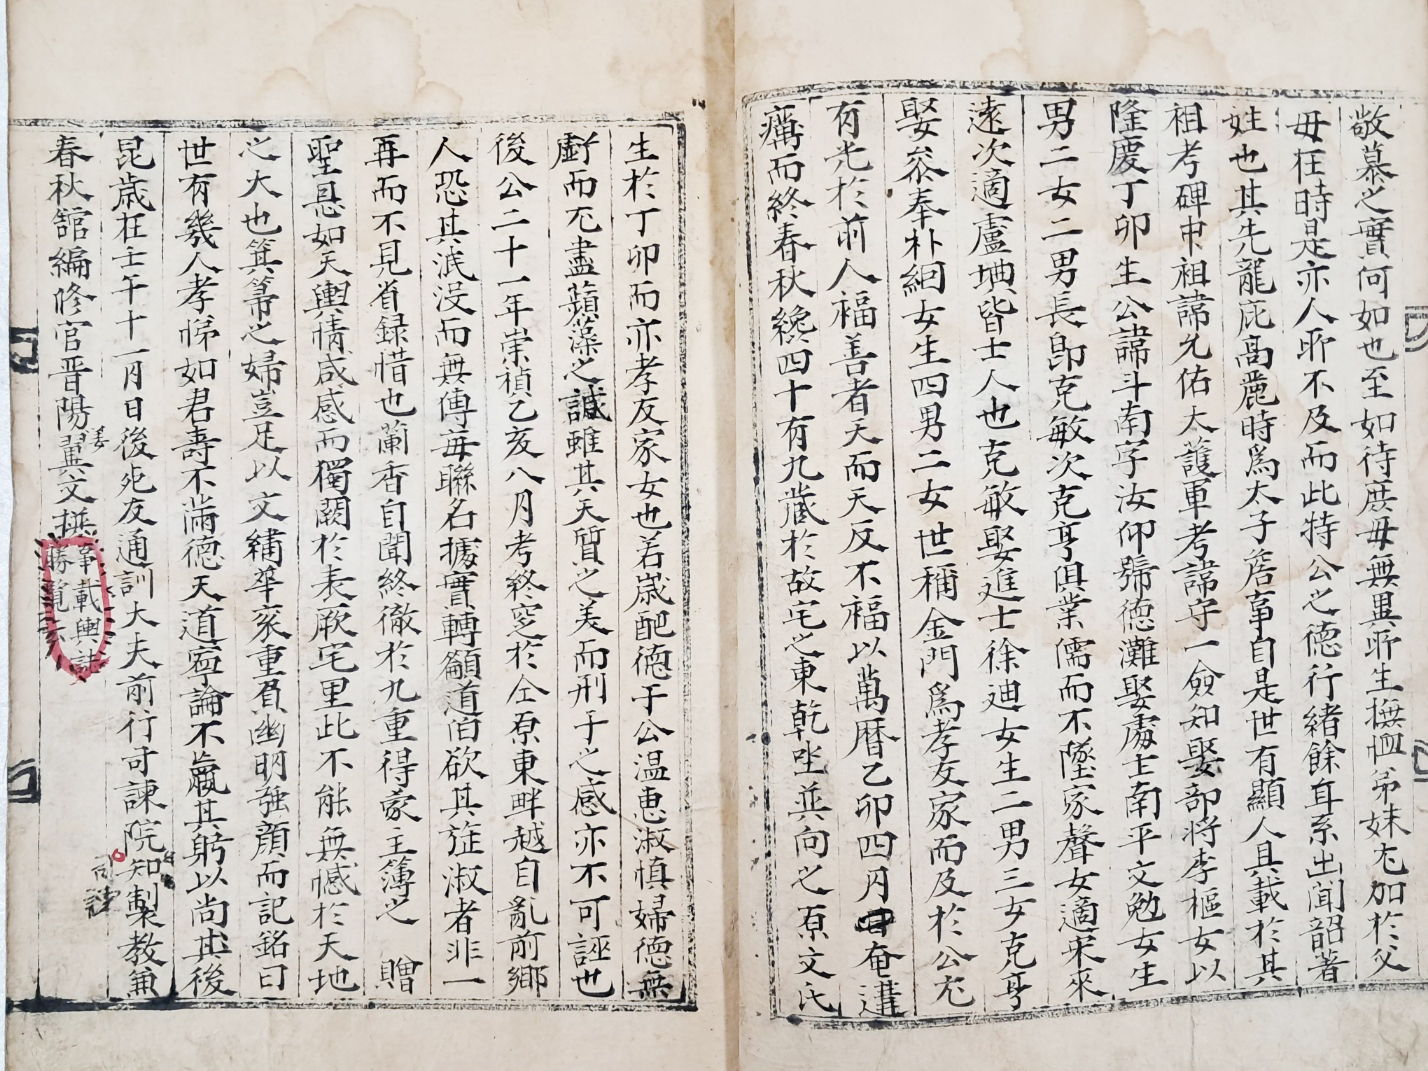 敬慕之實何如也至如待庶母無異所生撫恤弟妹尤加於父
母在時是亦人所不及而此特公之德行緖餘耳系出聞韶著
姓也其先龍庇高麗時爲太子詹事自是世有顯人具載於其
祖考碑中祖諱允佑大護軍考諱守一僉知娶部將李樞女以
隆慶丁卯生公諱斗南字汝仰號德灘娶處士南平文勉女生
男二女二男長卽克敏次克亨俱業儒而不墜家聲女適宋來
遠次適盧㙽皆士人也克敏娶進士徐廸女生二男三女克亨
娶叅奉朴絪女生四男二女世稱金門爲孝友家而及於公尤
有光於前人福善者天而天反不福以萬曆乙卯四月奄遘
癘而終春秋纔四十有九葬於故宅之東乾坐巽向之原文氏
生於丁卯而亦孝友家女也若歲配德于公溫惠淑愼婦德無
虧而克盡蘋藻之誠雖其天質之美而刑于之感亦不可誣也
後公二十一年崇禎乙亥八月考終窆於仝原東畔越自亂前鄉
人恐其泯沒而無傳每聯名據實轉籲道伯欲其旌淑者非一
再而不見省錄惜也蘭香自聞終徹於九重得蒙主簿之 贈
聖恩如天輿情咸感而獨闕於表厥宅里此不能無憾於天地
之大也箕箒之婦豈足以文繡華家重負幽明强顔而記銘曰
世有幾人孝悌如君壽不滿德天道寧論不贏其躬以尚其後
昆歲在壬午十一月日後死友通訓大夫前行司諫院知製教兼
司諫
春秋舘編修官晋陽姜翼文撰
事載輿誌
勝覽云